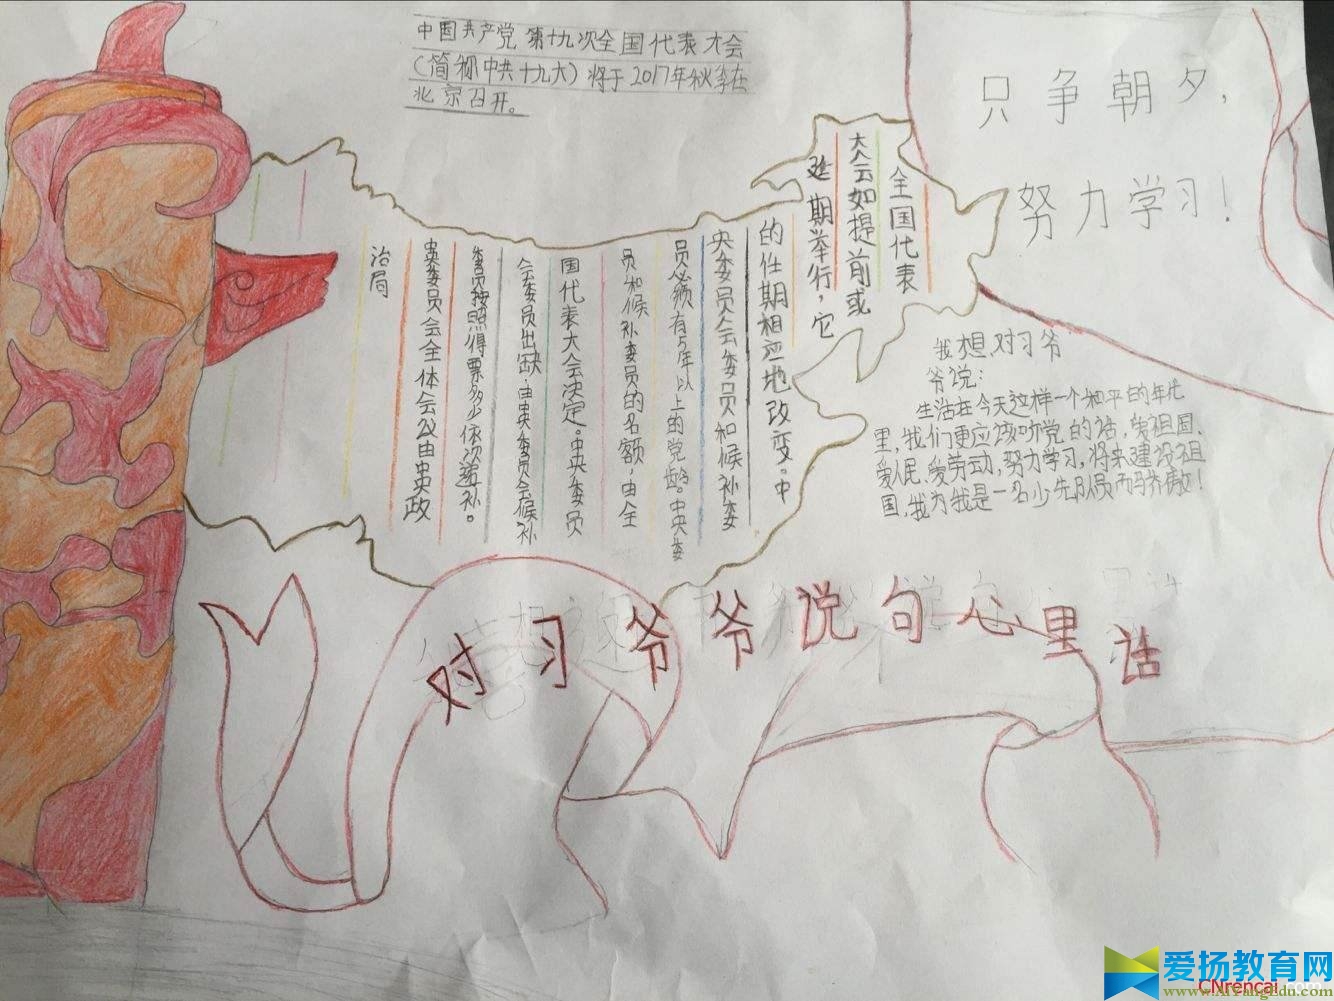 中国共产党第十九次全国代表大会
(简称中共十九大)将于2017年秋季在
北京召开。
只争朝夕,
努力学习!
全国代表
大会如提前或
延期举行,它
的任期相应地改变。中
央委员会委员和候补委
员必须有5年以上的党龄。中央委
员和候补委员的名额,由全
国代表大会决定。中央委员
会委员出缺,由中央委员会候补
委员按照得票多少依次递补。
中央委员会全体会议由中央政
治局
我想对习爷
爷说:
生活在今天这样一个和平的年代
里,我们更应该听党的话,爱祖国、
爱人民、爱劳动,努力学习,将来建设祖
国,我为我是一名少先队员而骄傲!
对习爷爷说句心里话
爱扬教育网
www.AiYangEdu.com
CNrencai.com